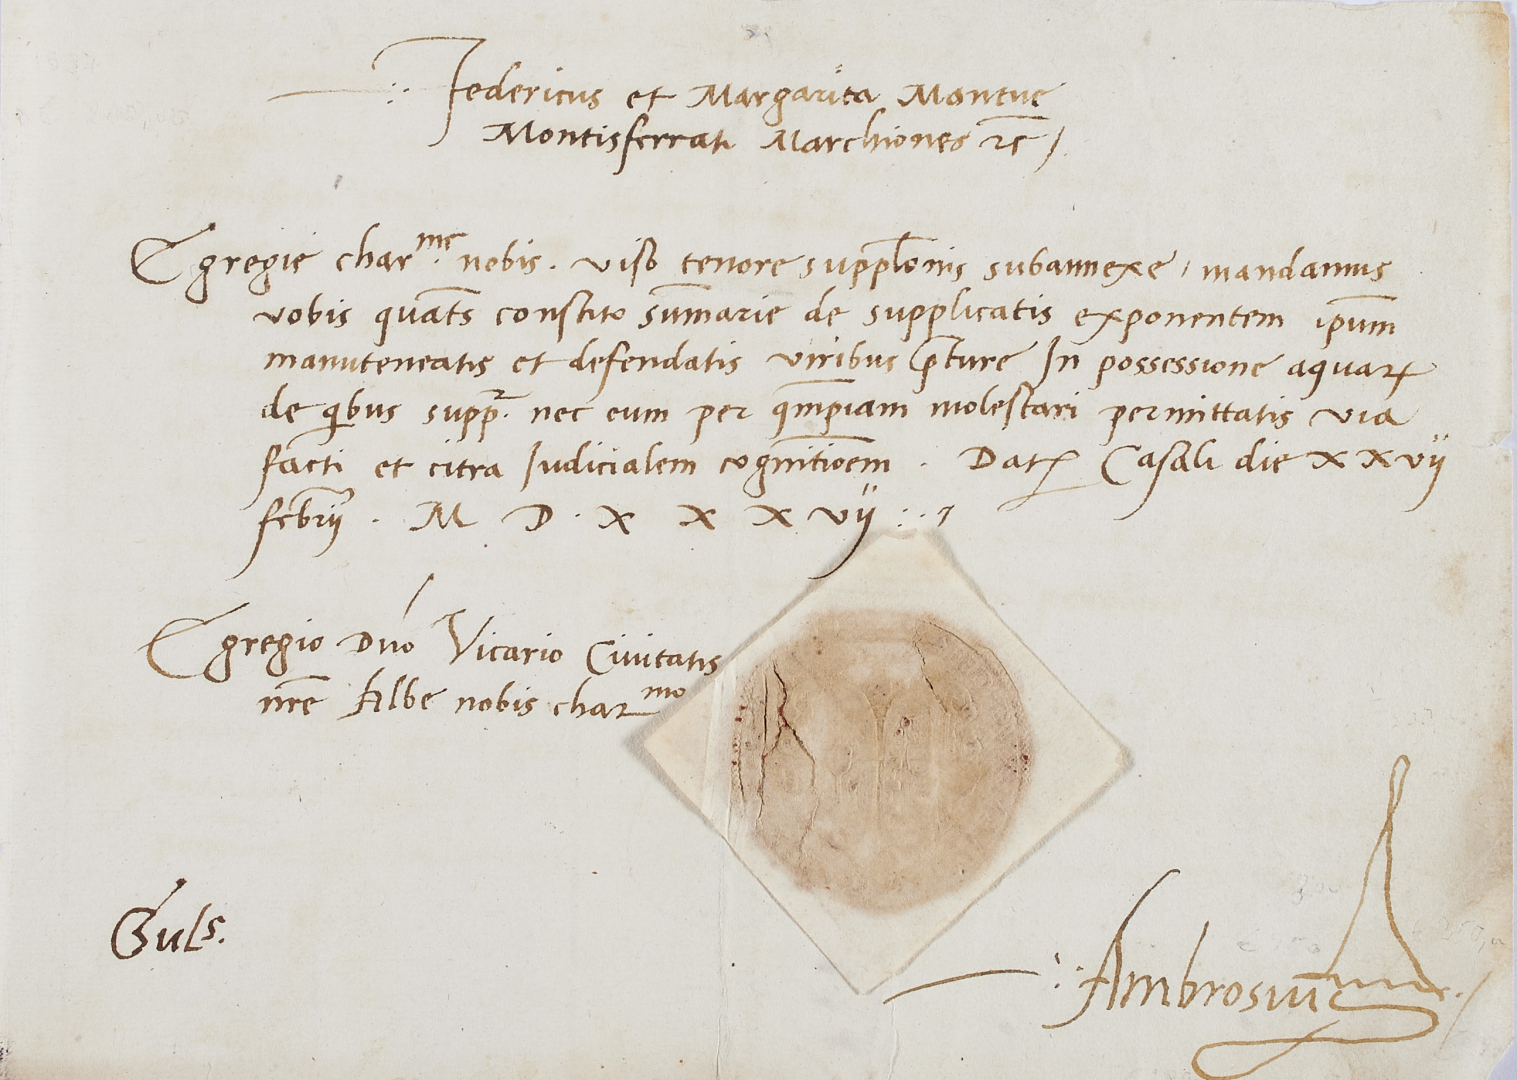 Federicus et Margarita Mantue
Montisferrati Marchiones &c
Egregie char.me nobis. Viso tenore supplonis subannexe, mandamus
vobis quats constito summarie de supplicatis exponentem ipum
manuteneatis et defendatis viribus pture In possessione aquar
de qbus suppr. nec eum per qmpiam molestari permittatis via
facti et citra Iudicialem cognitioem. Dat Casali die XXVII
febrij. M D. X X X Vij
Egregio Dno Vicario Civitatis
nre Albe nobis charmo
Guls.
Ambrosius